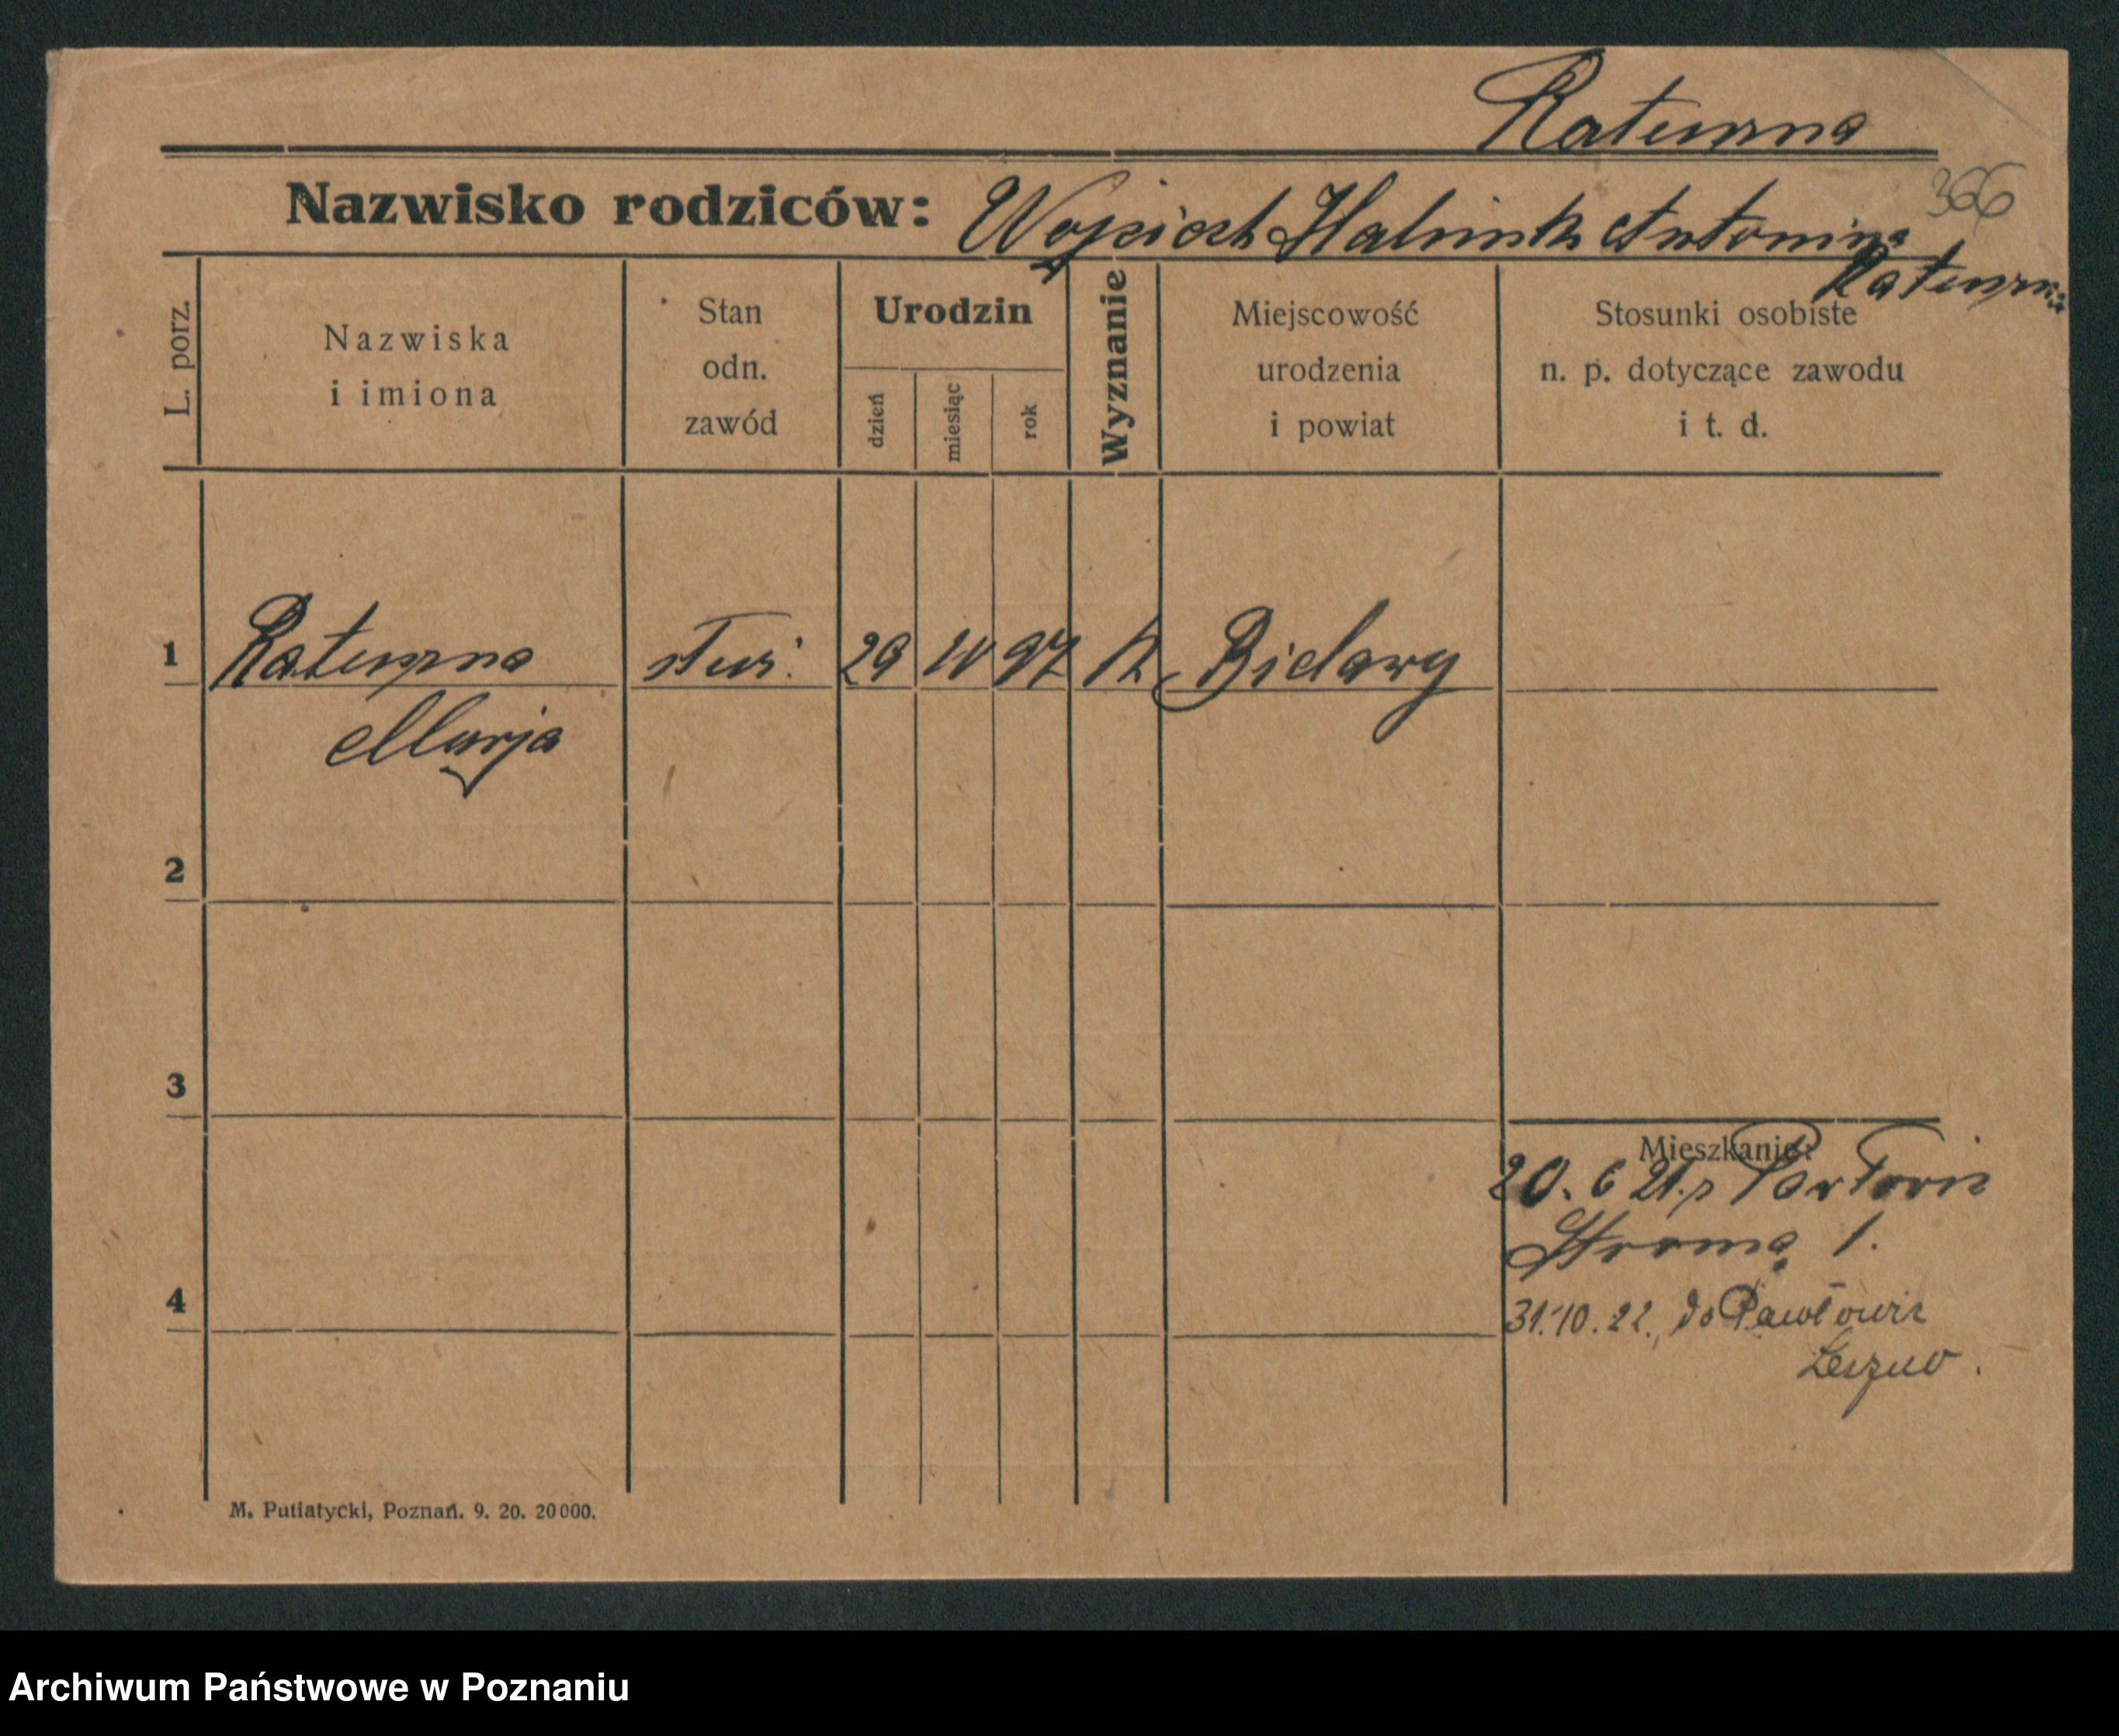 Ratuszna
366
Nazwisko rodziców: Wojciech Halmink Antonina
Ratuszna
L. porz.
Nazwiska
i imiona
Stan
odn.
zawód
Urodzin
dzień
miesiąc
rok
Wyznanie
Miejscowość
urodzenia
i powiat
Stosunki osobiste
n. p. dotyczące zawodu
i t. d.
1 Ratuszna służ. 29 IV 97 K Bielawy
Marja
2
3
Mieszkanie:
20. 6 21. z
Stroma 1.
4
31.10.22. do Pawłowic
Leszno.
M. Putiatycki, Poznań. 9. 20. 20000.
Archiwum Państwowe w Poznaniu